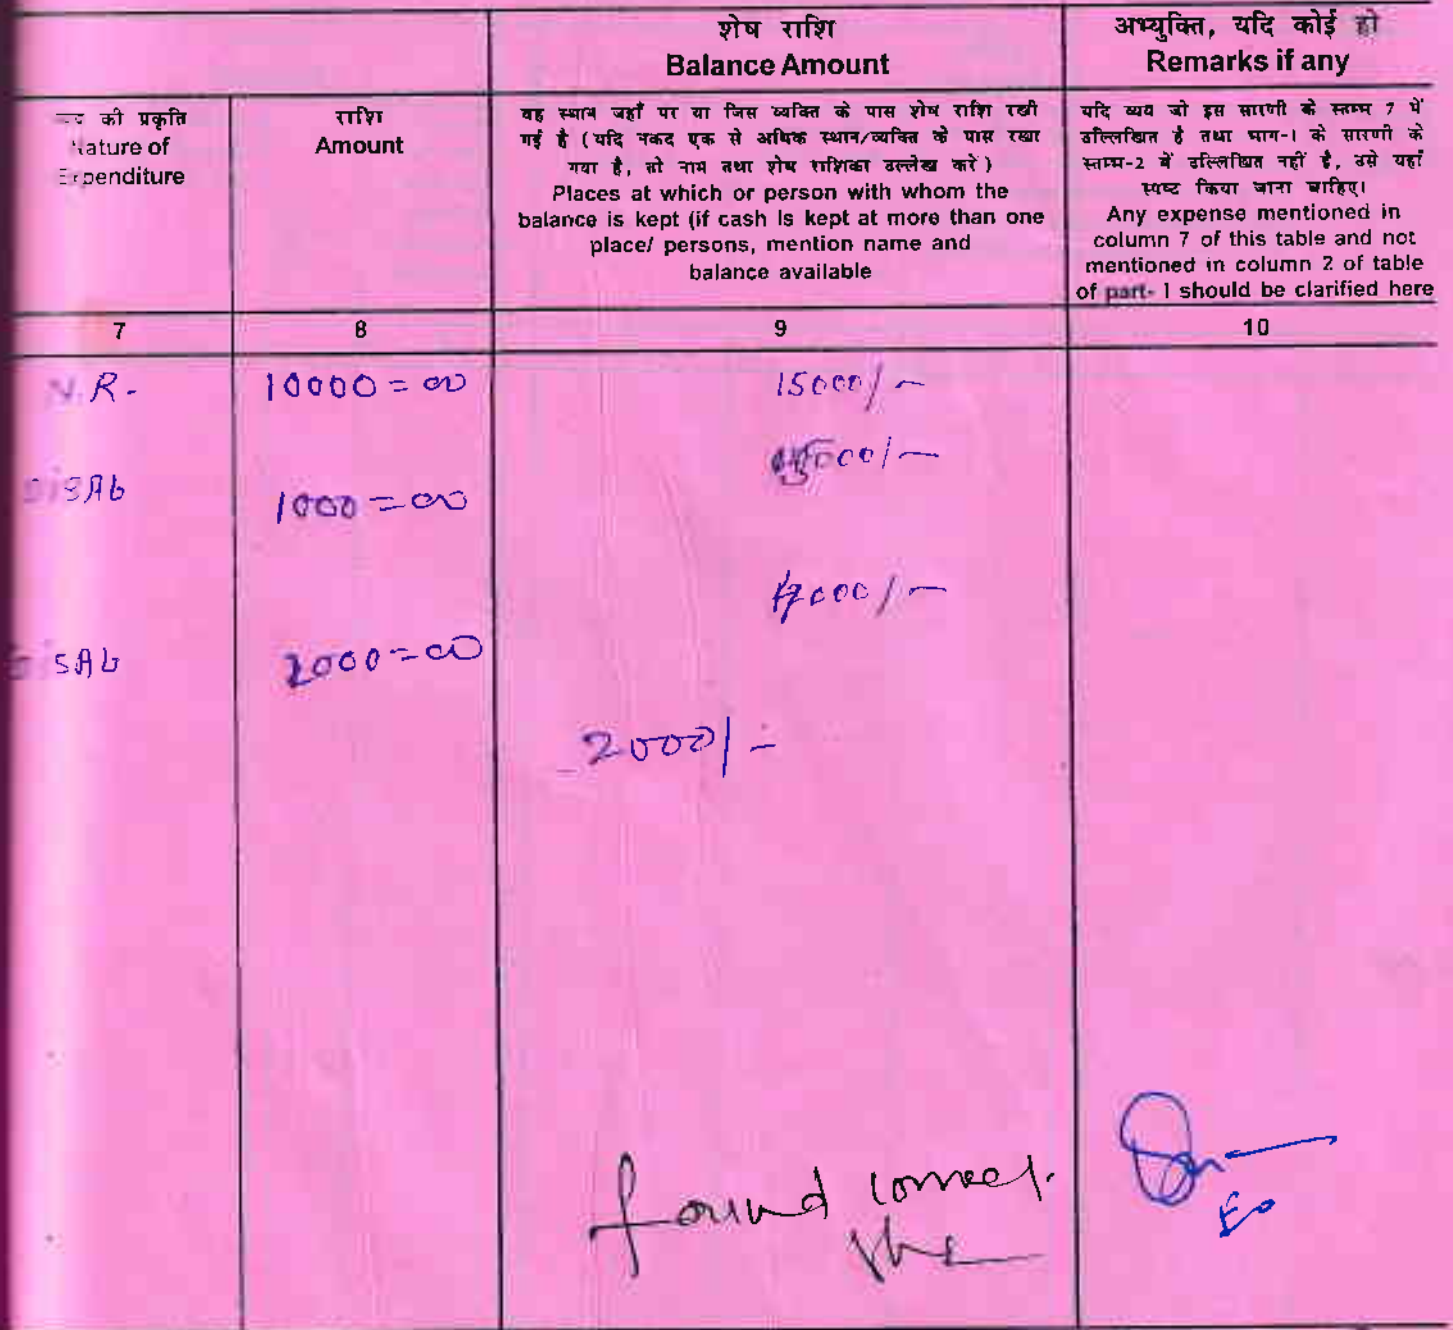 शेष राशि
Balance Amount
अभ्युक्ति, यदि कोई हो
Remarks if any
की प्रकृति
Nature of
Expenditure
राशि
Amount
वह स्थान जहाँ पर या जिस व्यक्ति के पास शेष राशि रखी
गई है (यदि नकद एक से अधिक स्थान/व्यक्ति के पास रखा
गया है, तो नाम तथा शेष राशिका उल्लेख करें)
Places at which or person with whom the
balance is kept (if cash is kept at more than one
place/ persons, mention name and
balance available
यदि व्यय जो इस सारणी के स्तम्भ 7 में
उल्लिखित है तथा भाग-1 के सारणी के
स्तम्भ-2 में उल्लिखित नहीं है, उसे यहाँ
स्पष्ट किया जाना चाहिए।
Any expense mentioned in
column 7 of this table and not
mentioned in column 2 of table
of part- I should be clarified here
7 8 9 10
N.R- 10000=00 15000/-
DISAb 1000=00
SAb 2000=00
2000/-
found correct.
Eo